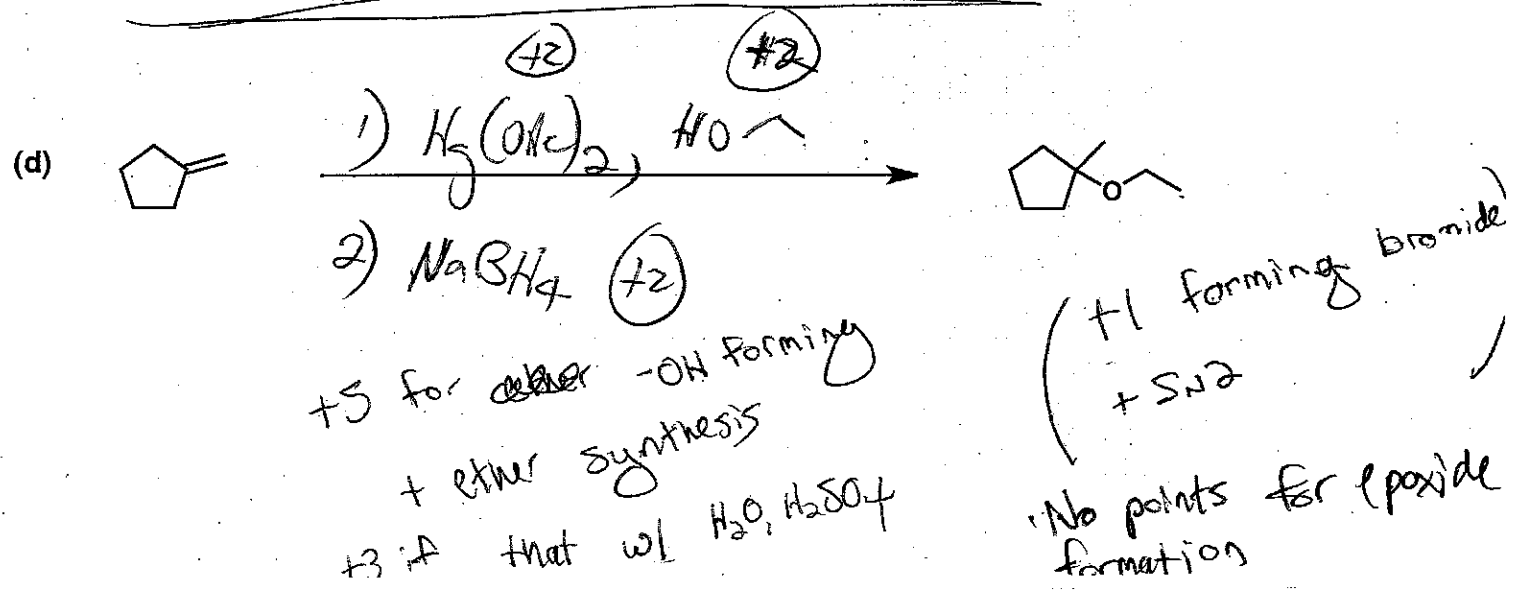 +2 +2
1) Hg(OAc)2, HO
(d)
O
2) NaBH4 +2
+5 for -OH forming
+ ether synthesis
+3 if that w/ H2O, H2SO4
(+1 forming bromide)
+ SN2
No points for epoxide
formation